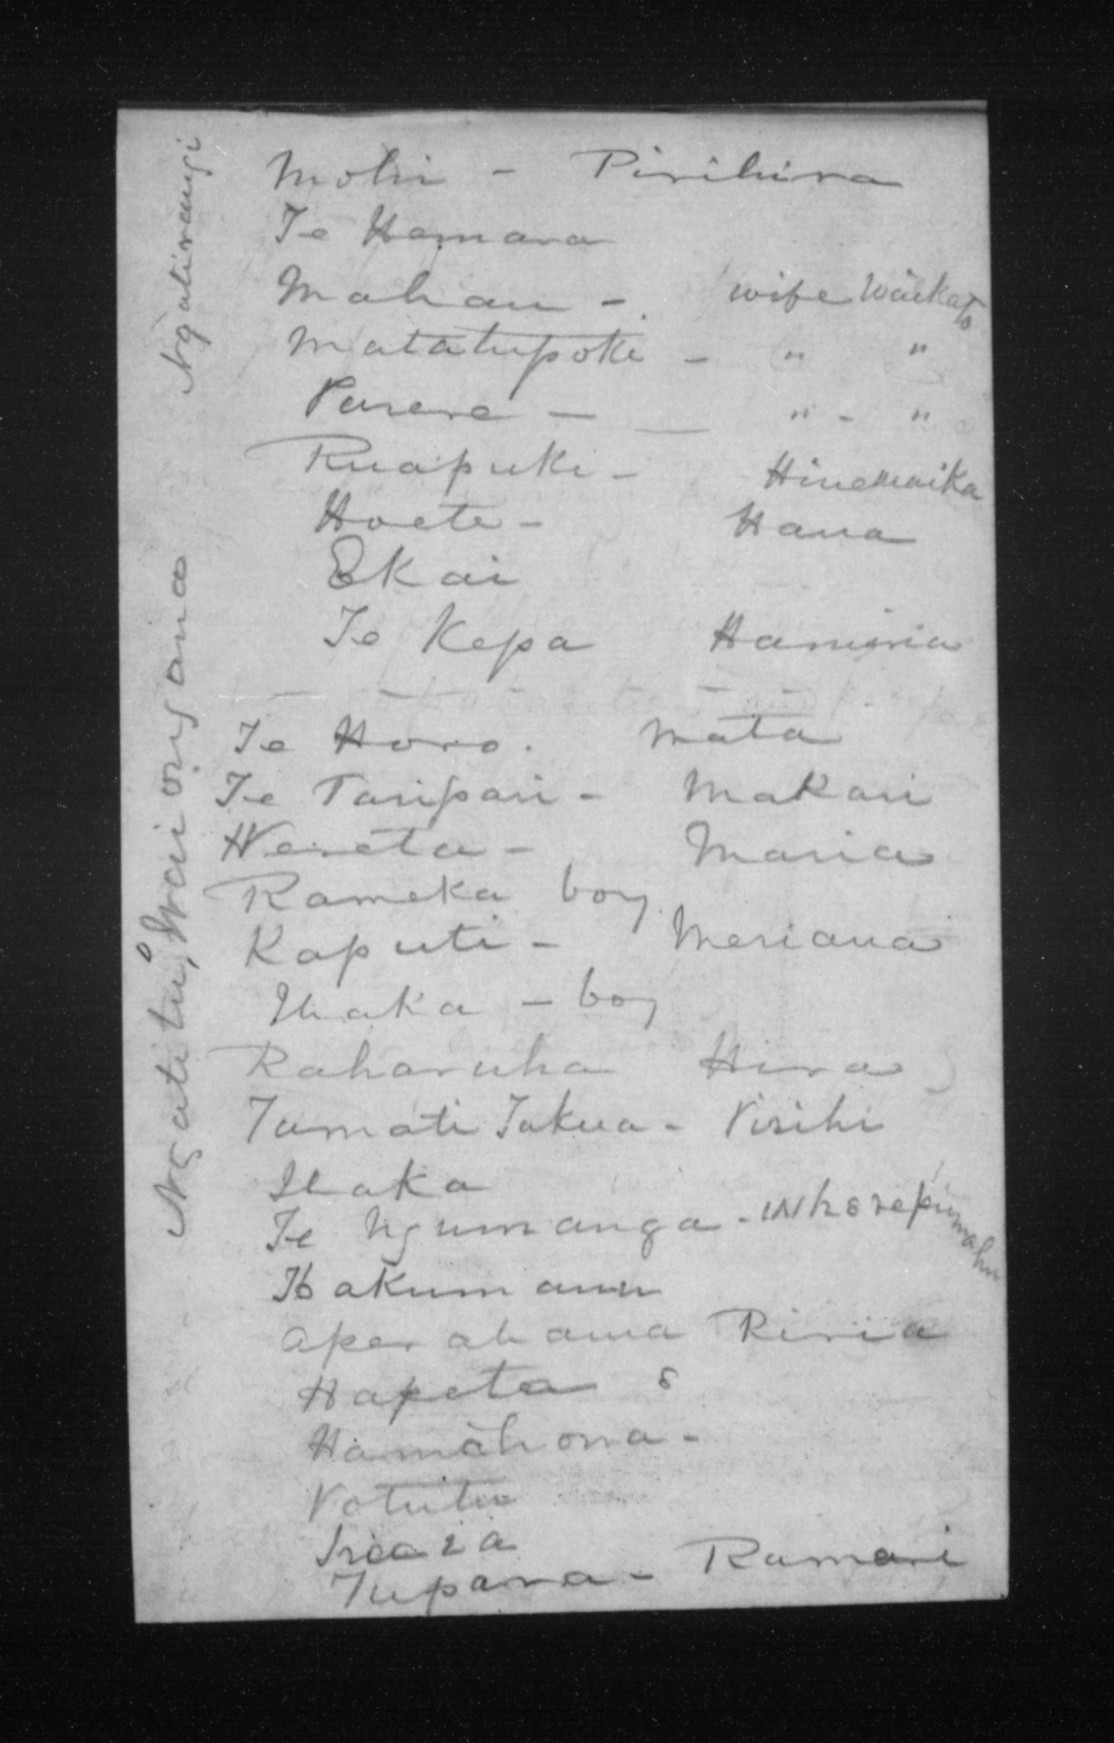 Ngatirangi
Mohi - Pirihira
Te Hamara
Mahau - wife Waikato
Matatupoki - " "
Parera - " - "
Ruapuke - Hinewaika
Hoete - Hana
Ekai
Te Kepa Hamiria
Ngatitu, Waiongana
Te Horo. Mata
Te Taripari - Makari
Wereta - Maria
Rameka boy
Kaputi - Meriana
Ihaka - boy
Raharuha Hira
Tamati Takua - Pirihi
Ihaka
Te Ngumanga -
Aperahama Riria
Hapeta
Hamahona -
Potutu
Tupara - Ramari